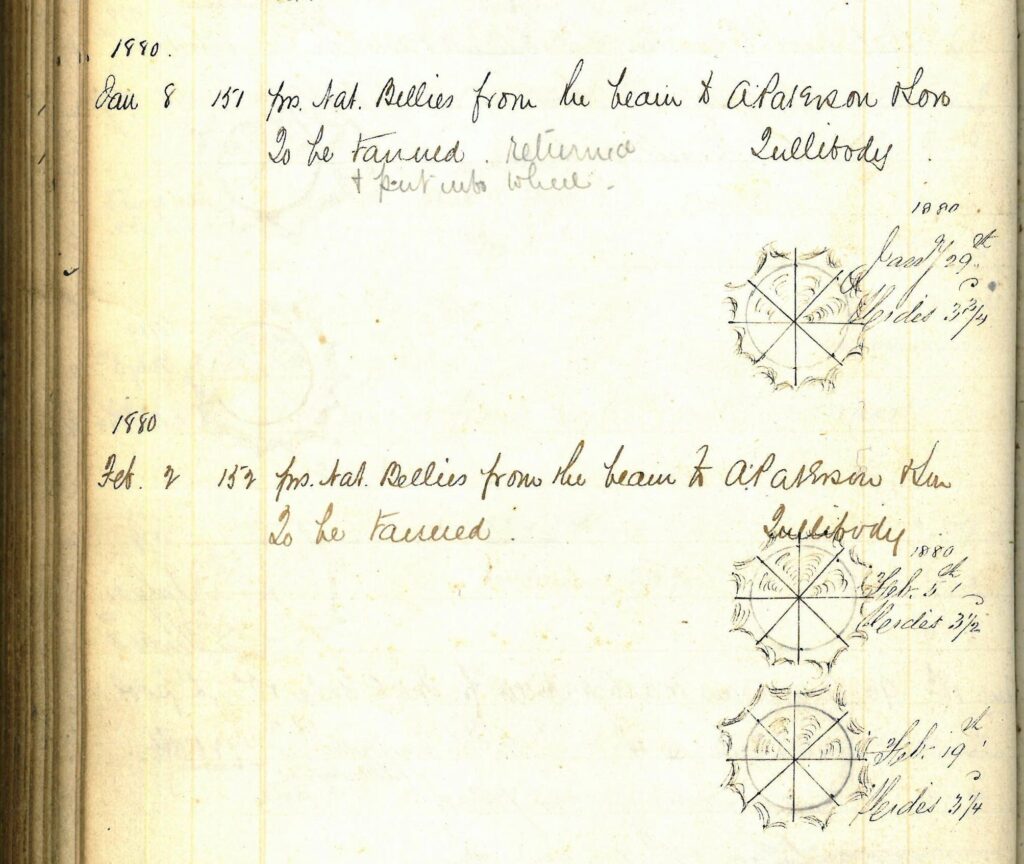 1880.
Jan 8 151 prs. Nat. Bellies from the beam to A. Paterson & Son
To be tanned. returned Tullibody.
& put into wheel.
1880
Jany 29th
Heides 3 3/4 d
1880
Feb. 2 152 prs. Nat. Bellies from the beam to A. Paterson & Son
To be tanned. Tullibody
1880
Feb. 5th
Heides 3 1/2 d
Feb. 19th
Heides 3 1/4 d